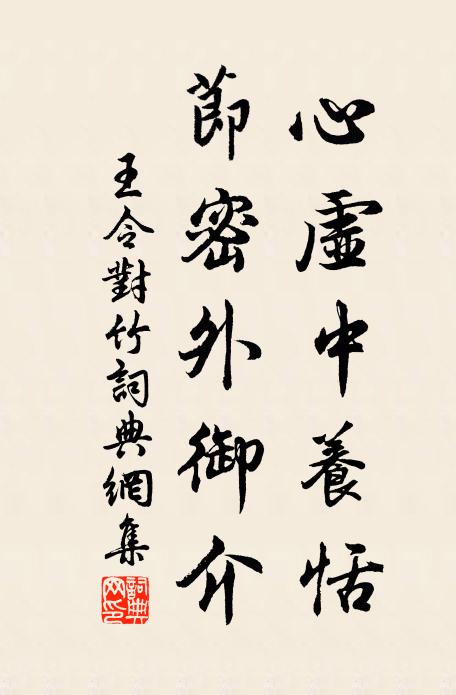 心虛中養恬
節密外御介
王令對竹詞典網集
詞典網印